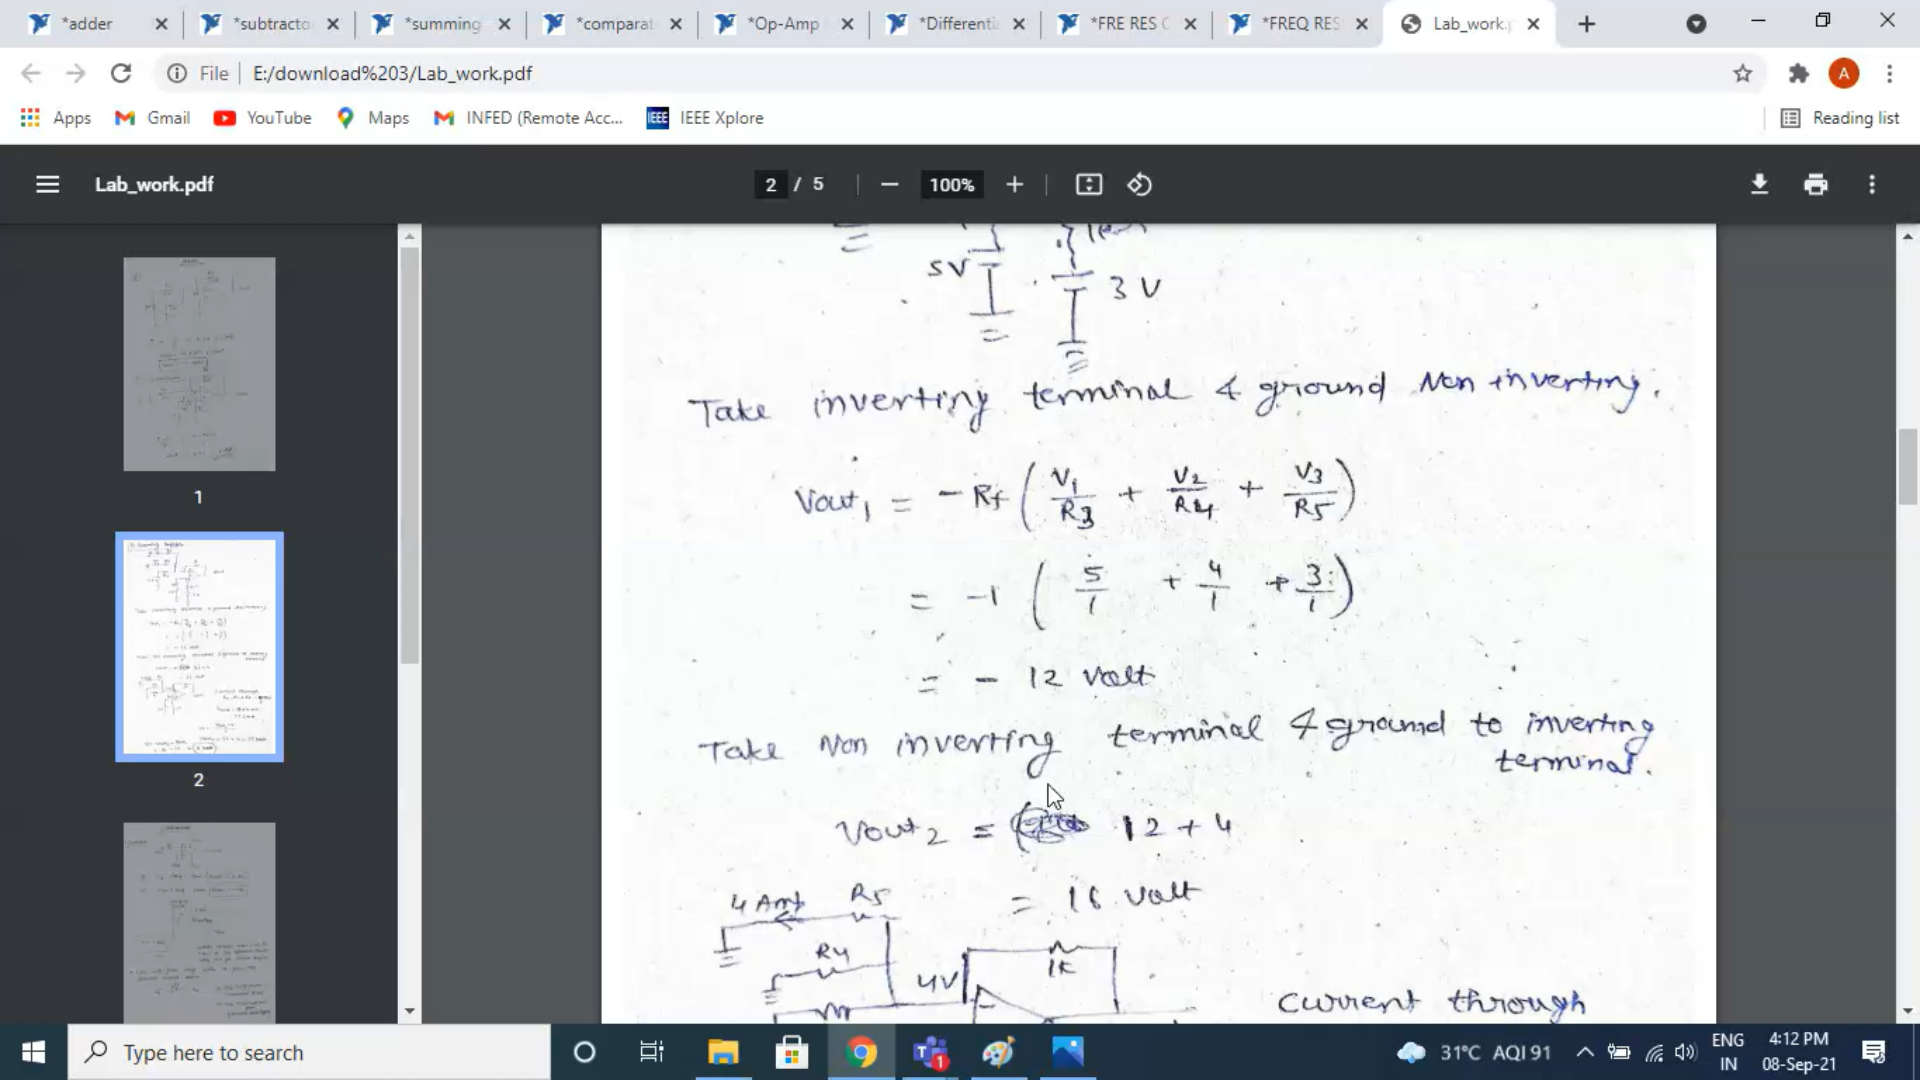 *adder
*subtracto
*summing
*comparat
*Op-Amp
*Differenti
*FRE RES C
*FREQ RES
Lab_work.p
File
E:/download%203/Lab_work.pdf
A
Apps
Gmail
YouTube
Maps
INFED (Remote Acc...
IEEE
IEEE Xplore
Reading list
Lab_work.pdf
2 / 5
100%
1
2
5V
3 V
Take inverting terminal & ground Non inverting.
Vout1 = - Rf ( V1/R3 + V2/R4 + V3/R5 )
= -1 ( 5/1 + 4/1 + 3/1 )
= - 12 Volt
Take Non inverting terminal & ground to inverting
terminal.
Vout2 = 12 + 4
= 16 Volt
4 Amp R5
R4
4V
1K
Current through
Type here to search
1
31°C AQI 91
ENG
IN
4:12 PM
08-Sep-21